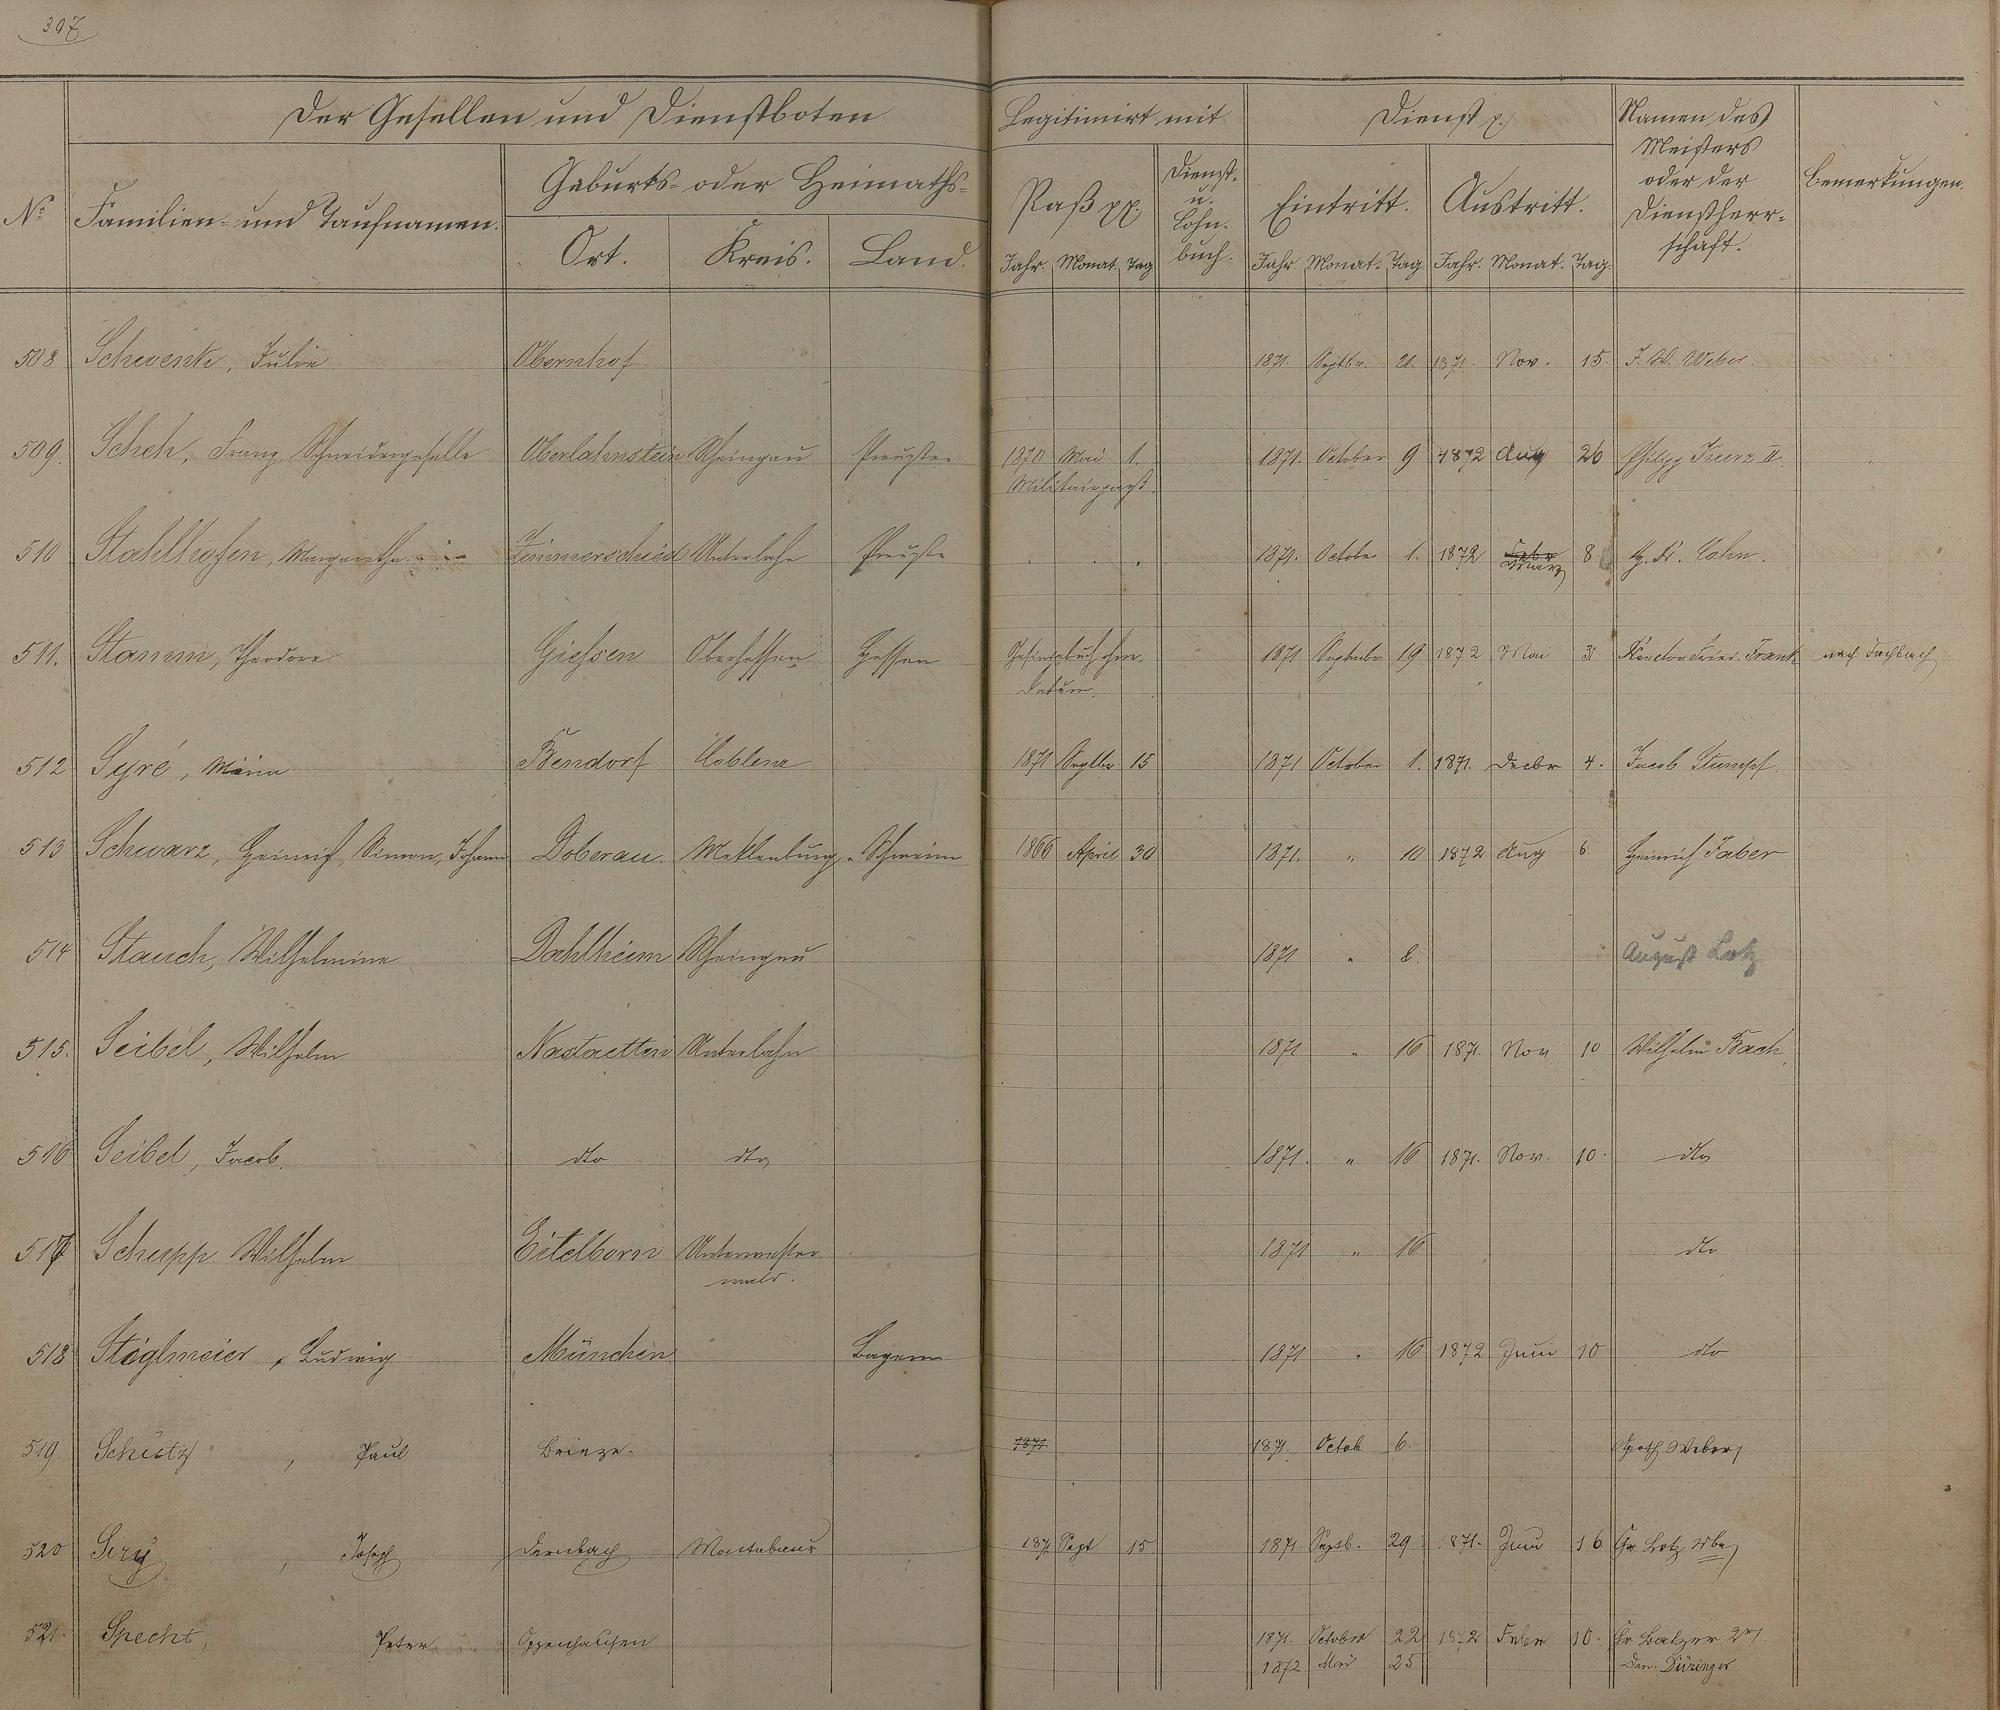 397
Der Gesellen und Dienstboten
Legitimirt mit
Dienst p.
Namen des Meisters oder der Dienstherr-schaft.
Bemerkungen.
No
Familien- und Taufnamen.
Geburts- oder Heimaths-
Ort. Kreis. Land.
Paß pp.
Jahr. Monat. Tag
Dienst- u. Lohn-buch.
Eintritt.
Jahr. Monat. Tag.
Austritt.
Jahr. Monat. Tag.
508 Schwenk, Julie Obernhof 1871. Septbr. 21. 1871. Nov. 15. J. W. Weber.
509. Scheh, Franz, Schneidergeselle Oberlahnstein Rheingau Preußen 1870 Mai 1. 1871. October 9 1872 Aug 26 Philipp Kurz II.
Militairpaß.
510 Stahlhofen, Margaretha Zimmerschied Unterlahn Preußen 1871. October 1. 1872 Febr März 8 Cahn.
511. Stamm, Theodore Giessen Oberhessen Hessen Gesindebuch ohne 1871 September 19 1872 Mai 31 Frank nach Fachbach
Datum.
512 Syré, Mina Bendorf Coblenz 1871 Septbr 15 1871 October 1. 1871. Decbr 4. Jacob Stumpf.
513 Schwarz, Heinrich, Simon, Johann Doberan. Meklenburg, - Schwerin 1866 April 30 1871. " 10 1872 Aug 6 Heinrich Faber
514 Stauch, Wilhelmine Dahlheim Rheingau 1871 " 8. August Lotz
515. Seibel, Wilhelm Nastaetten Unterlahn 1871 " 16 1871. Nov 10 Wilhelm Bach.
516 Seibel, Jacob. dto dto 1871. " 16 1871. Nov. 10. dto
517 Schupp Wilhelm Eitelborn Unterwester 1871 " 16 dto
wald.
518 Stiglmeier, Ludwig München Bayern 1871 " 16 1872 Juni 10 dto
519. Schütz, Paul 1871 1871. Octob 6. Weber
520 Sery, Joseph Dernbach Montabaur 1871 Sept 15. 1871. Septb. 29 1871. Juni 16 Chr Lotz Wbe
521. Specht, Peter Oppenhausen 1871. October 22 1872 Febr 10. Chr Balzer 2r
1872 Mai 25 Düringer